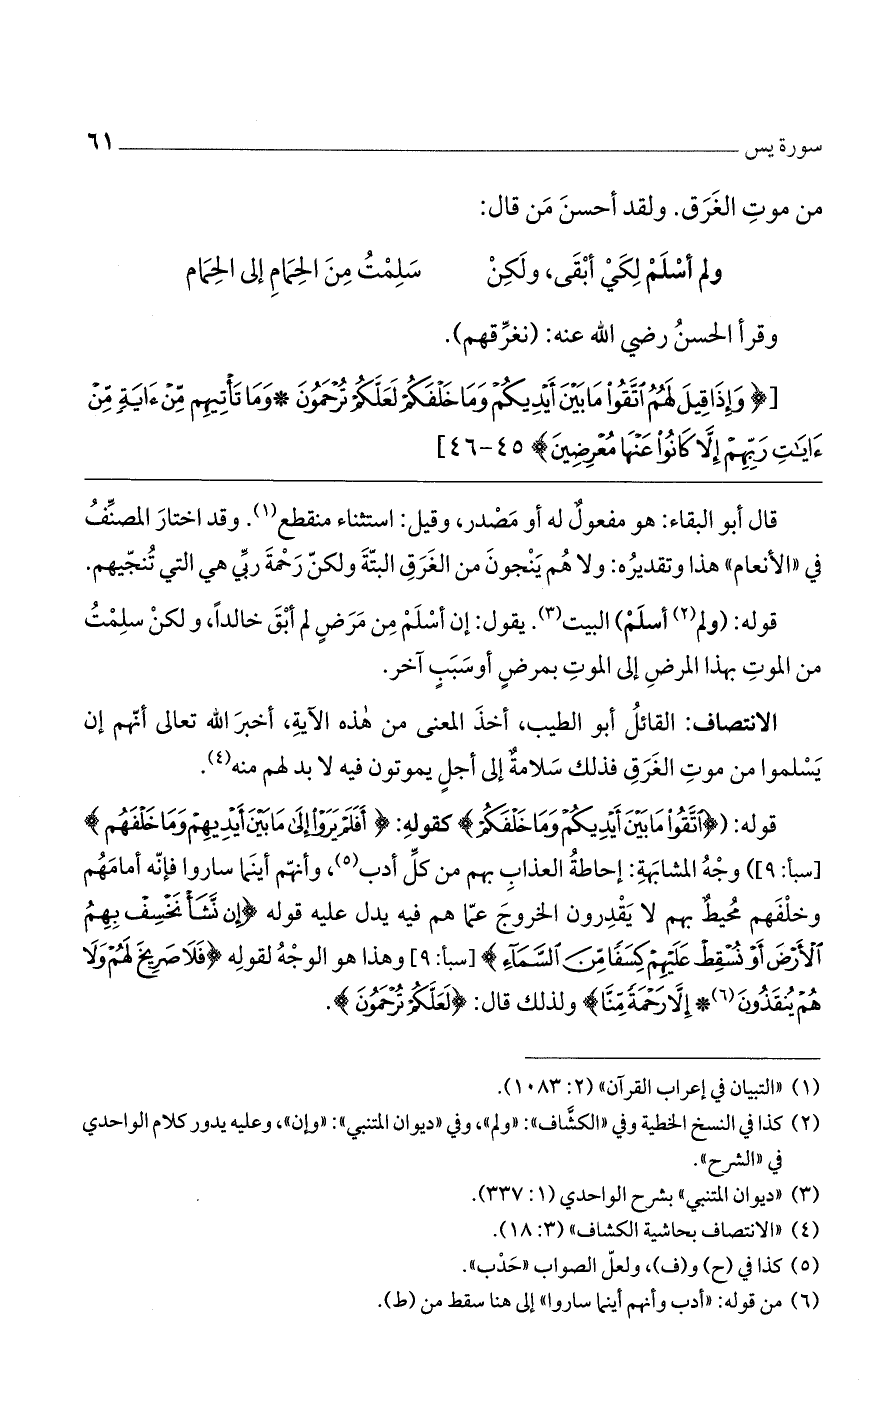 سورة يس ٦١
من موتِ الغَرَق. ولقد أحسنَ مَن قال:
ولم أسْلَمْ لِكَيْ أبْقَى، ولَكِنْ سَلِمْتُ مِنَ الحِمَامِ إلى الحِمَام
وقرأ الحسنُ رضي الله عنه: (نغرِّقهم).
[﴿ وَإِذَا قِيلَ لَهُمُ ٱتَّقُوا۟ مَا بَيْنَ أَيْدِيكُمْ وَمَا خَلْفَكُمْ لَعَلَّكُمْ تُرْحَمُونَ * وَمَا تَأْتِيهِم مِّنْ ءَايَةٍ مِّنْ
ءَايَٰتِ رَبِّهِمْ إِلَّا كَانُوا۟ عَنْهَا مُعْرِضِينَ﴾ ٤٥-٤٦]
قال أبو البقاء: هو مفعولٌ له أو مَصْدر، وقيل: استثناء منقطع(١). وقد اختارَ المصنِّفُ
في «الأنعام» هذا وتقديرُه: ولا هُم يَنْجونَ من الغَرَقِ البتّةَ ولكنّ رَحْمةَ ربِّي هي التي تُنجّيهم.
قوله: (ولم(٢) أسلَمْ) البيت(٣). يقول: إن أسْلَمْ مِن مَرَضٍ لم أبْقَ خالداً، ولكنْ سلِمْتُ
من الموتِ بهذا المرضِ إلى الموتِ بمرضٍ أو سَبَبٍ آخر.
الانتصاف: القائلُ أبو الطيب، أخذَ المعنى من هٰذه الآيةِ، أخبرَ الله تعالى أنّهم إن
يَسْلموا من موتِ الغَرَقِ فذلك سَلامةٌ إلى أجلٍ يموتون فيه لا بد لهم منه(٤).
قوله: (﴿ٱتَّقُوا۟ مَا بَيْنَ أَيْدِيكُمْ وَمَا خَلْفَكُمْ﴾ كقولهِ: ﴿ أَفَلَمْ يَرَوْا۟ إِلَىٰ مَا بَيْنَ أَيْدِيهِمْ وَمَا خَلْفَهُم ﴾
[سبأ: ٩]) وجْهُ المشابَهةِ: إحاطةُ العذابِ بهم من كلِّ أدب(٥)، وأنهّم أينَما ساروا فإنّه أمامَهُم
وخلْفَهم مُحيطٌ بهم لا يَقْدِرون الخروجَ عمّا هم فيه يدل عليه قوله ﴿إِن نَّشَأْ نَخْسِفْ بِهِمُ
ٱلْأَرْضَ أَوْ نُسْقِطْ عَلَيْهِمْ كِسَفًا مِّنَ ٱلسَّمَآءِ ﴾ [سبأ: ٩] وهذا هو الوجْهُ لقولِه ﴿فَلَا صَرِيخَ لَهُمْ وَلَا
هُمْ يُنقَذُونَ(٦)* إِلَّا رَحْمَةً مِّنَّا﴾ ولذلك قال: ﴿لَعَلَّكُمْ تُرْحَمُونَ ﴾.
(١) «التبيان في إعراب القرآن» (٢: ١٠٨٣).
(٢) كذا في النسخ الخطية وفي «الكشَّاف»: «ولم»، وفي «ديوان المتنبي»: «وإن»، وعليه يدور كلام الواحدي
في «الشرح».
(٣) «ديوان المتنبي» بشرح الواحدي (١: ٣٣٧).
(٤) «الانتصاف بحاشية الكشاف» (٣: ١٨).
(٥) كذا في (ح) و(ف)، ولعلّ الصواب «حَدْب».
(٦) من قوله: «أدب وأنهم أينما ساروا» إلى هنا سقط من (ط).